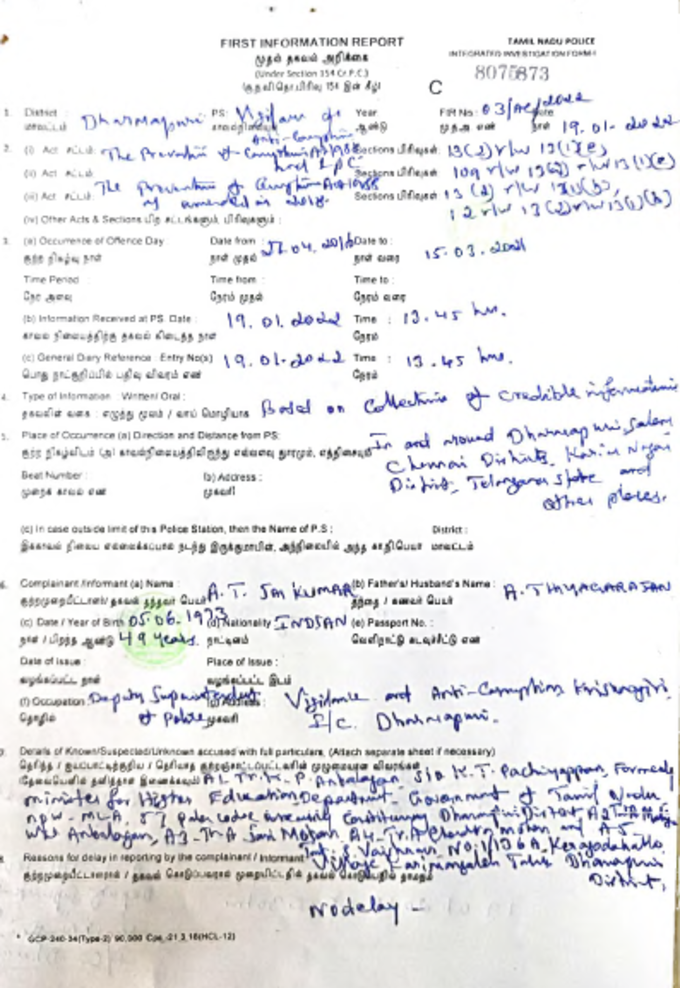 FIRST INFORMATION REPORT
TAMIL NADU POLICE
முதல் தகவல் அறிக்கை
INTEGRATED INVESTIGATION FORM-I
(Under Section 154 Cr.P.C.)
8075873
(கு.வி.தொ.பிரிவு 154 இன் கீழ்)
C
1. District : Dharmapuri PS: Vigilance & Anti-Corruption Year FIR No: 03/AC/2022 Date
மாவட்டம் காவல்நிலையம் ஆண்டு மு.த.அ. எண் நாள் 19.01.2022
2. (i) Act சட்டம்: The Prevention of Corruption Act 1988 Sections பிரிவுகள்: 13(2) r/w 13(1)(e)
(ii) Act சட்டம்: and IPC Sections பிரிவுகள் 109 r/w 13(2) r/w 13(1)(e)
(iii) Act சட்டம்: The Prevention of Corruption Act 1988 as amended in 2018. Sections பிரிவுகள் 13(2) r/w 13(1)(b),
12 r/w 13(2) r/w 13(1)(b)
(iv) Other Acts & Sections பிற சட்டங்களும், பிரிவுகளும் :
3. (a) Occurrence of Offence Day Date from : 27.04.2016 Date to :
குற்ற நிகழ்வு நாள் நாள் முதல் நாள் வரை 15.03.2021
Time Period : Time from : Time to :
நேர அளவு நேரம் முதல் நேரம் வரை
(b) Information Received at PS. Date : 19.01.2022 Time : 13.45 hrs.
காவல் நிலையத்திற்கு தகவல் கிடைத்த நாள் நேரம்
(c) General Diary Reference : Entry No(s) 19.01.2022 Time : 13.45 hrs.
பொது நாட்குறிப்பில் பதிவு விவரம் எண் நேரம்
4. Type of Information : Written/ Oral :
தகவலின் வகை : எழுத்து மூலம் / வாய் மொழியாக Based on Collection of credible information
5. Place of Occurrence (a) Direction and Distance from PS: In and around Dharmapuri, Salem
குற்ற நிகழ்விடம் (அ) காவல்நிலையத்திலிருந்து எவ்வளவு தூரமும், எத்திசையும் Chennai Districts, Karim Nagar
Beat Number : (b) Address : District, Telangana State and
முறைக் காவல் எண் முகவரி other places.
(c) In case outside limit of this Police Station, then the Name of P.S : District :
இக்காவல் நிலைய எல்லைக்கப்பால் நடந்து இருக்குமாயின், அந்நிலையில் அந்த காதிபெயர் மாவட்டம்
6. Complainant /Informant (a) Name : A. T. JAI KUMAR (b) Father's/ Husband's Name : A. THIYAGARAJAN
குற்றமுறையீட்டாளர்/ தகவல் தந்தவர் பெயர் தந்தை / கணவர் பெயர்
(c) Date / Year of Birth 05.06.1973 (d) Nationality INDIAN (e) Passport No. :
நாள் / பிறந்த ஆண்டு 49 years. நாட்டினம் வெளிநாட்டு கடவுச்சீட்டு எண்
Date of Issue : Place of Issue :
வழங்கப்பட்ட நாள் வழங்கப்பட்ட இடம்
(f) Occupation : Deputy Superintendent (g) Address : Vigilance and Anti-Corruption, Krishnagiri,
தொழில் of Police முகவரி I/c. Dharmapuri.
7. Details of Known/Suspected/Unknown accused with full particulars, (Attach separate sheet if necessary)
தெரிந்த / ஐயப்பாட்டிற்குரிய / தெரியாத குற்றஞ்சாட்டப்பட்டவர்களின் முழுமையான விவரங்கள்
(தேவையெனில் தனித்தாள் இணைக்கவும்) A1. Tr. K. P. Anbalagan, S/o K.T. Pachiyappan, Formerly
minister for Higher Education Department, Government of Tamil Nadu
now - MLA, 57 Palacode Assembly Constituency Dharmapuri District A2
W/o Anbalagan, A3 - Sasi Mohan, A4 - Tr. A. Chandra mohan and A5
8. Reasons for delay in reporting by the complainant / Informant Tmt. S. Vaishnavi, No. 1/136A, Keragodahalli,
குற்றமுறையீட்டாளரால் / தகவல் கொடுப்பவரால் முறையிட்டதில் தகவல் கொடுப்பதில் தாமதம் Village Karimangalam Taluk Dharmapuri
District.
No delay -
* GCP-240-34(Type-2) 90,000 Cps.-21.3.18(HCL-12)